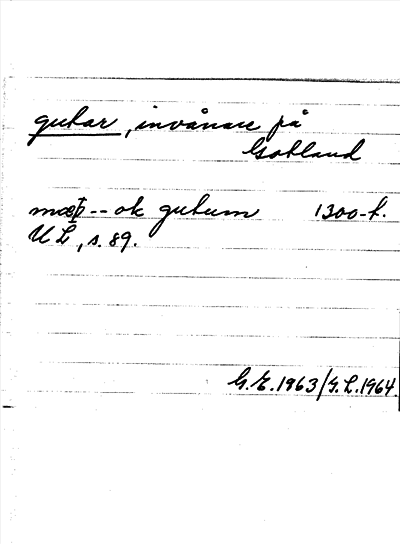 gutar, invånare på
Gotland
mæþ -- ok gutum 1300-t.
UL, s. 89.
G.E. 1963/G.L. 1964.